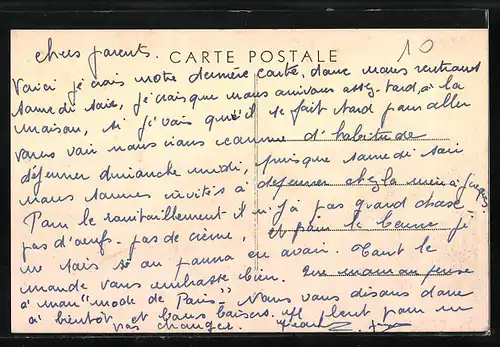 chers parents.
CARTE POSTALE
10
Voici je crois notre dernière carte, donc nous rentrons
samedi soir, je crois que nous arrivons assez tard, à la
maison, si je vois qu'il se fait tard pour aller
vous voir nous irons comme d'habitude
déjeuner dimanche midi, puisque samedi soir
nous sommes invités à déjeuner chez la mère à
Pour le ravitaillement il n'y a pas grand chose
pas d'œufs - pas de crème, et pour le beurre je
ne sais si on pourra en avoir. Tout le
monde vous embrasse bien. Que maman pense
à mon "mode de Paris" - Nous vous disons donc
à bientôt et bons baisers. Il pleut pour ne
pas changer.